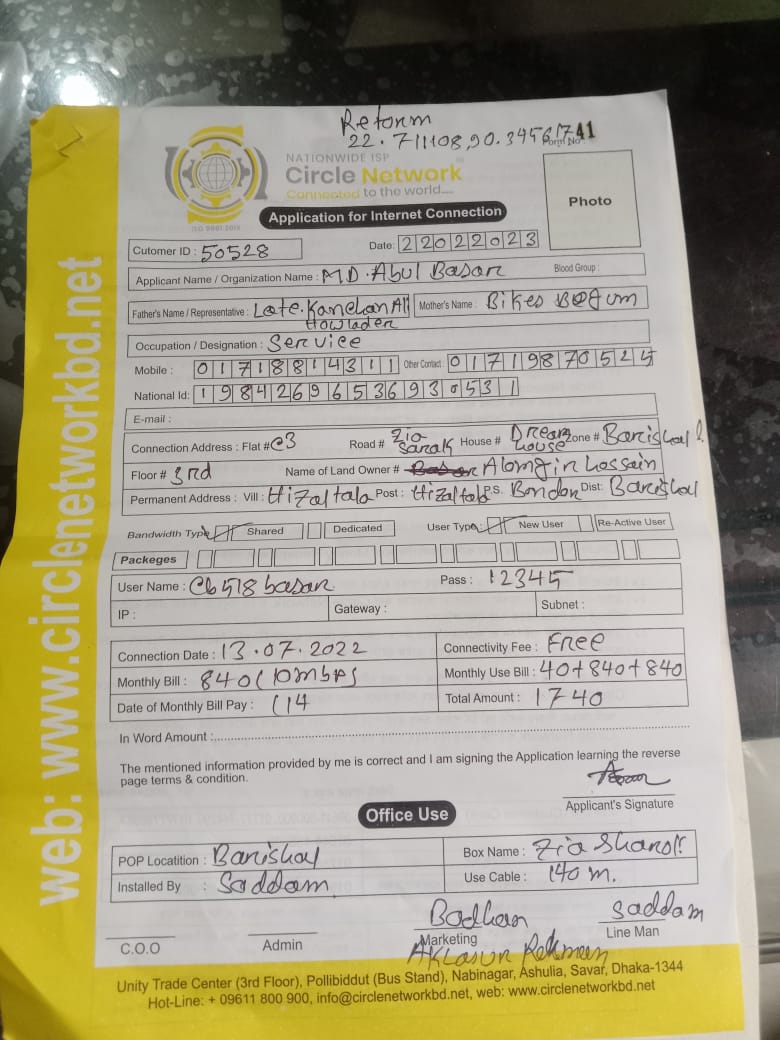 Retorm
22.7/1108,90.3456741
Form No
NATIONWIDE ISP
Circle Network
Connected to the world....
ISO 9001:2015
Application for Internet Connection
Photo
Cutomer ID : 50528
Date: 22022023
Applicant Name / Organization Name : MD. Abul Basar
Blood Group :
Father's Name / Representative : Late. Kanchan Ali Howlader
Mother's Name : Bikes Begum
Occupation / Designation : Service
Mobile : 01718814311 Other Contact : 01719870525
National Id: 19842696536930531
E-mail :
Connection Address : Flat # C3 Road # Zia Sarak House # Dream house Zone # Barishal
Floor # 3rd Name of Land Owner # Alomgir hossain
Permanent Address : Vill : Hizaltala Post : Hizaltala P.S. Bondor Dist: Barishal
Bandwidth Type Shared Dedicated User Type: New User Re-Active User
Packeges
User Name : Cb518basar Pass : 12345
IP : Gateway : Subnet :
Connection Date : 13.07.2022 Connectivity Fee : Free
Monthly Bill : 840(10mbps Monthly Use Bill : 40+840+840
Date of Monthly Bill Pay : (14 Total Amount : 1740
In Word Amount :
The mentioned information provided by me is correct and I am signing the Application learning the reverse
page terms & condition.
Applicant's Signature
Office Use
POP Locatition : Barishal Box Name : Zia Sharok
Installed By : Saddam Use Cable : 140 m.
Badhan Saddam
C.O.O Admin Marketing Line Man
Aklasur Rahman
Unity Trade Center (3rd Floor), Pollibiddut (Bus Stand), Nabinagar, Ashulia, Savar, Dhaka-1344
Hot-Line: + 09611 800 900, info@circlenetworkbd.net, web: www.circlenetworkbd.net
web: www.circlenetworkbd.net